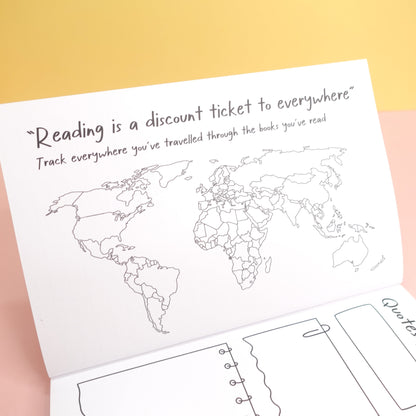 "Reading is a discount ticket to everywhere"
Track everywhere you've travelled through the books you've read
Quotes